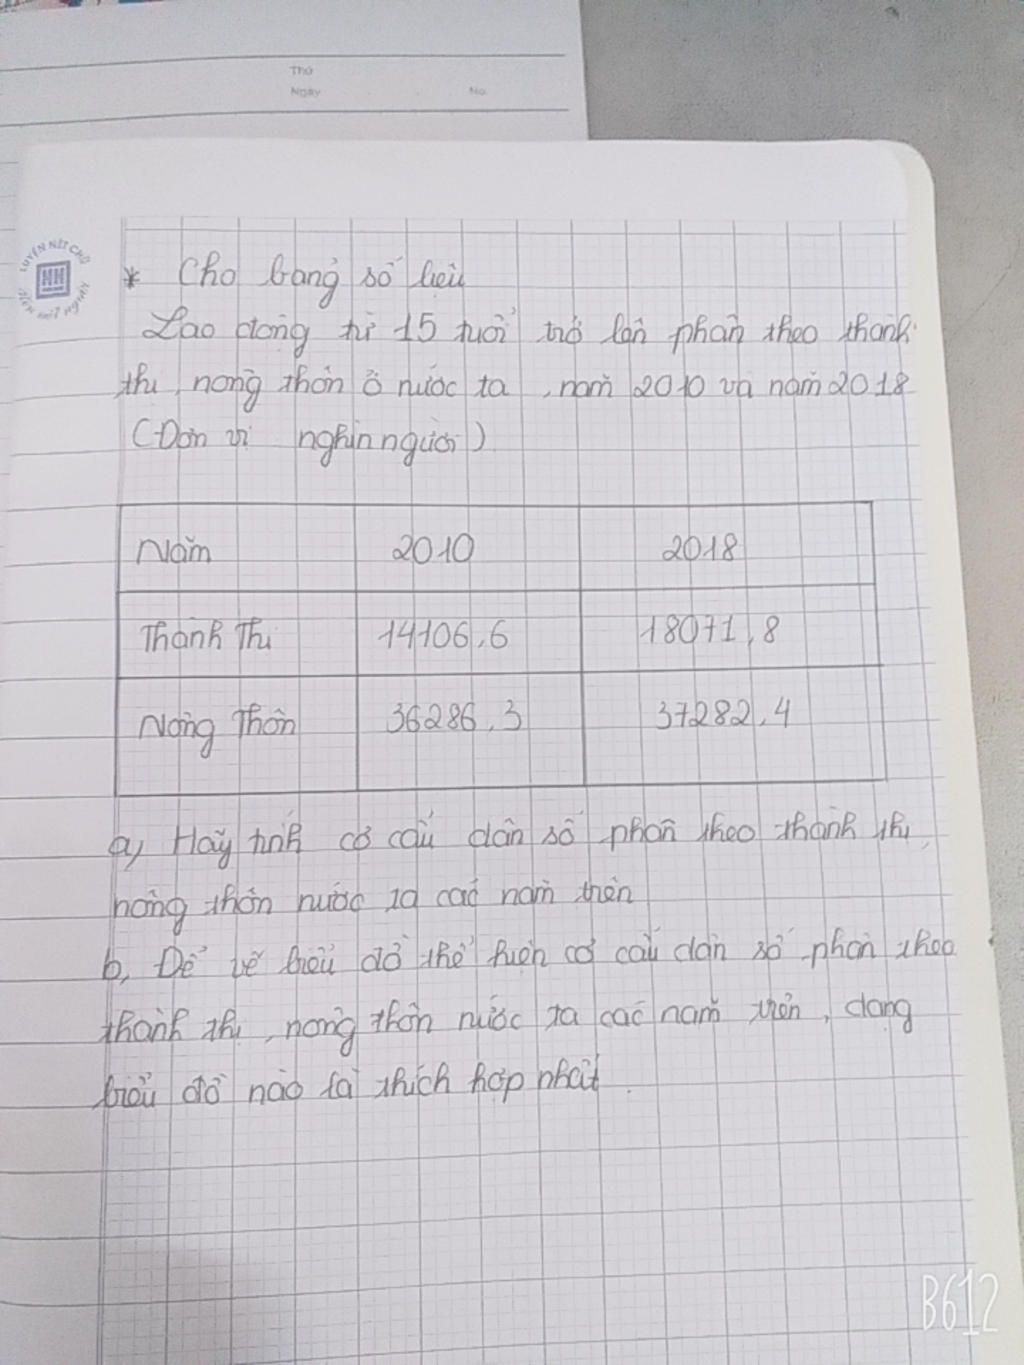 Thứ
Ngày No.
LUYỆN NÉT CHỮ
* Cho bảng số liệu
Lao động từ 15 tuổi trở lên phân theo thành
thị, nông thôn ở nước ta, năm 2010 và năm 2018
(Đơn vị nghìn người)
Năm 2010 2018
Thành Thị 14106,6 18071,8
Nông Thôn 36286,3 37282,4
a, Hãy tính cơ cấu dân số phân theo thành thị,
nông thôn nước ta các năm trên
b, Để vẽ biểu đồ thể hiện cơ cấu dân số phân theo
thành thị, nông thôn nước ta các năm trên, dạng
biểu đồ nào là thích hợp nhất.
B612